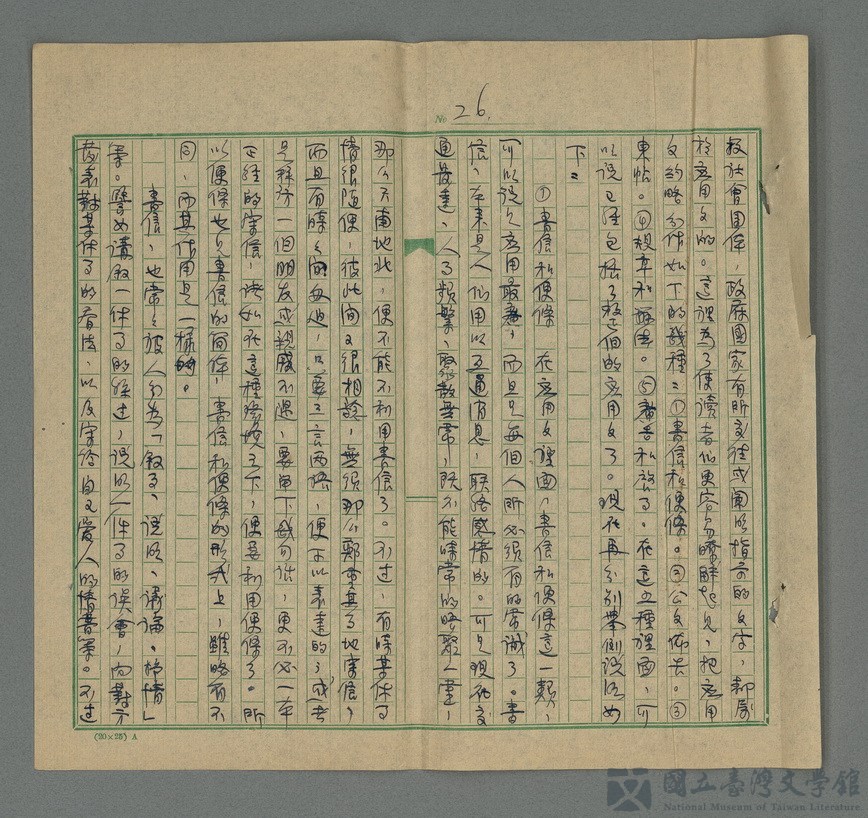 No 26.
投社會團体，政府國家有所交往或闡明指示的文字，都屬
於應用文的。這裡為了使讀者們更容易瞭解起見，把應用
文約略分作如下的幾種：①書信和便條。②公文佈告。③
柬帖。④規章和。⑤和啟事。在這五種裡面，可
以說已經包括了整個的應用文了。現在再分別舉例說明如
下：
①書信和便條　在應用文裡面，書信和便條這一類，
可以說是應用最廣，而且是每個人所必須有的常識了。書
信，本來是人們用以互通消息，聯絡感情的。可是現代交
通發達，人事頻繁，聚散無常，既不能時常的晤聚一堂，
那么天南地北，便不能不利用書信了。不过，有時某件事
情很随便，彼此間又很相諗，無須那么鄭重其事地寫信，
而且有時々间匆迫，只要三言两語，便可以表達的；或者
是拜訪一個朋友或親戚不遇，要留下幾句話，更不必一本
正經的寫信，諸如在這種環境之下，便要利用便條了。所
以便條也是書信的簡体，書信和便條的形式上，雖略有不
同，而其作用是一樣的。
書信，也常々被人分為「敘事、說明、議論、抒情」
等。譬如講敘一件事的經过，說明一件事的誤會，向對方
發表對某件事的看法，以及寫給自己愛人的情書等。不过
(20×25) A
國立臺灣文學館
National Museum of Taiwan Literature